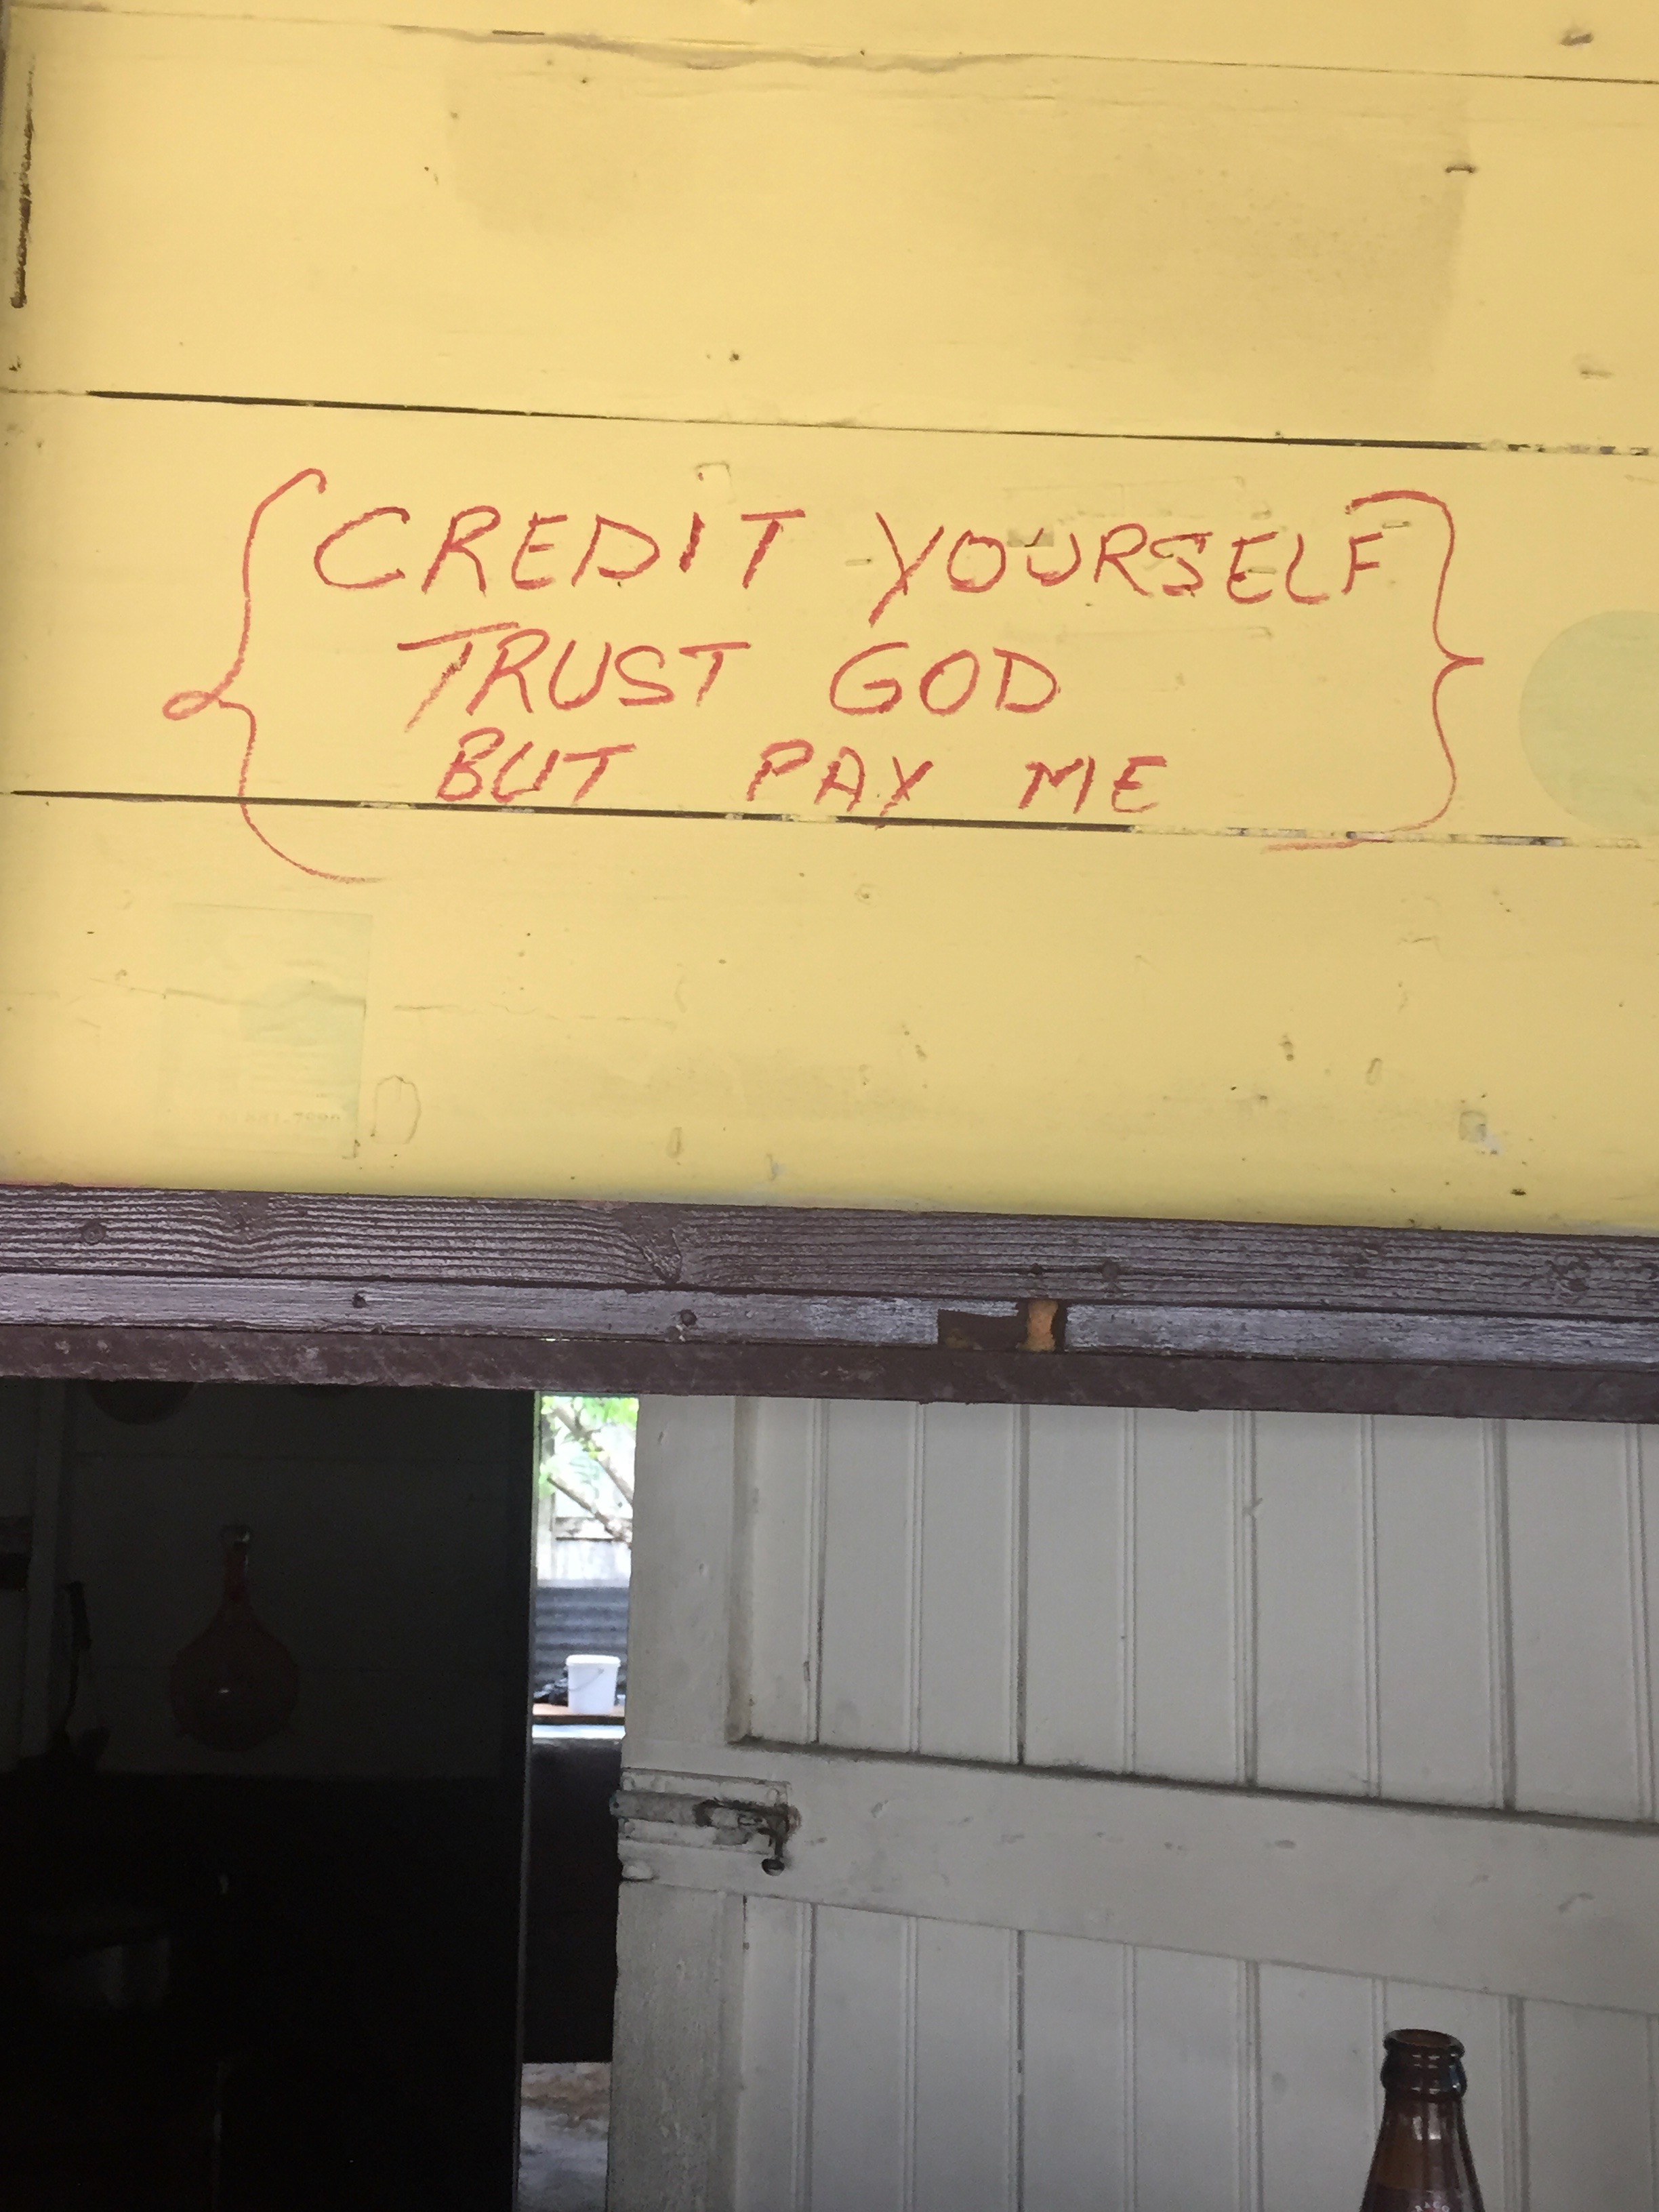 CREDIT YOURSELF
TRUST GOD
BUT PAY ME